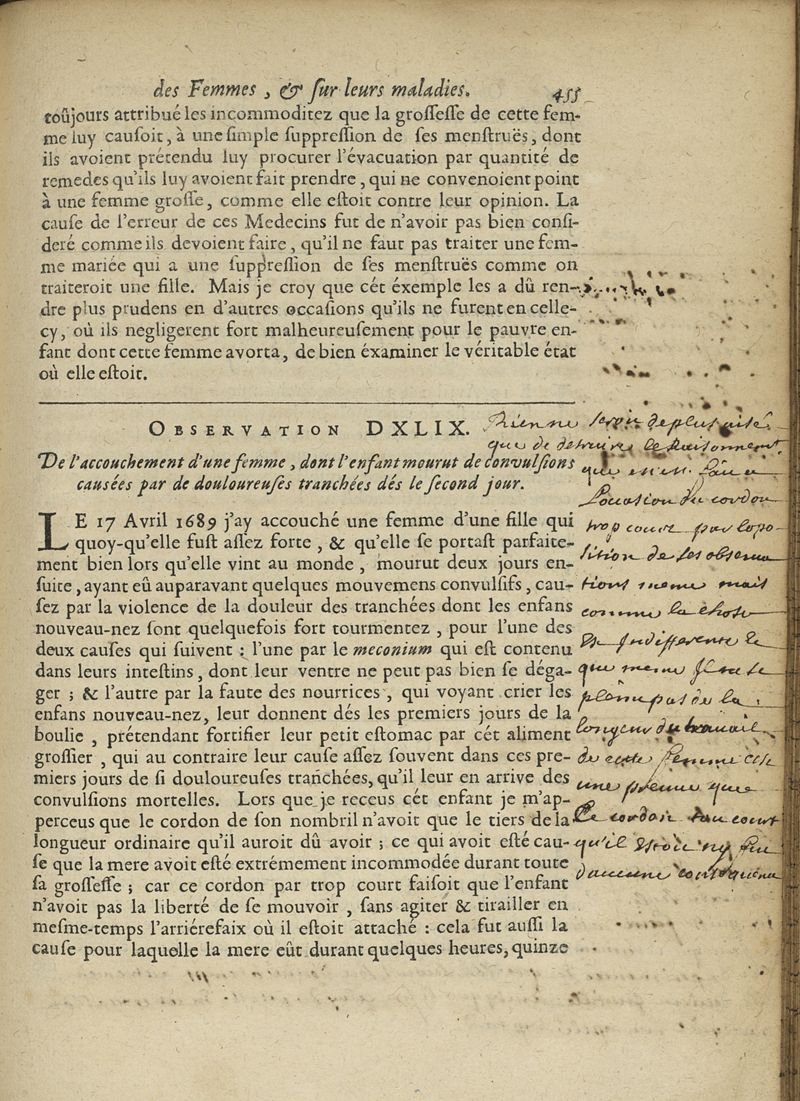 des Femmes, & ſur leurs maladies. 455
toûjours attribué les incommoditez que la groſſeſſe de cette fem-
me luy cauſoit, à une ſimple ſuppreſſion de ſes menſtruës, dont
ils avoient prétendu luy procurer l'évacuation par quantité de
remedes qu'ils luy avoient fait prendre, qui ne convenoient point
à une femme groſſe, comme elle eſtoit contre leur opinion. La
cauſe de l'erreur de ces Medecins fut de n'avoir pas bien conſi-
deré comme ils devoient faire, qu'il ne faut pas traiter une fem-
me mariée qui a une ſuppreſſion de ſes menſtruës comme on
traiteroit une fille. Mais je croy que cét éxemple les a dû ren-
dre plus prudens en d'autres occaſions qu'ils ne furent en celle-
cy, où ils negligerent fort malheureuſement pour le pauvre en-
fant dont cette femme avorta, de bien éxaminer le véritable état
où elle eſtoit.
OBSERVATION DXLIX.
De l'accouchement d'une femme, dont l'enfant mourut de convulſions
cauſées par de douloureuſes tranchées dés le ſecond jour.
LE 17 Avril 1689 j'ay accouché une femme d'une fille qui
quoy-qu'elle fuſt aſſez forte, & qu'elle ſe portaſt parfaite-
ment bien lors qu'elle vint au monde, mourut deux jours en-
ſuite, ayant eû auparavant quelques mouvemens convulſifs, cau-
ſez par la violence de la douleur des tranchées dont les enfans
nouveau-nez ſont quelquefois fort tourmentez, pour l'une des
deux cauſes qui ſuivent : l'une par le meconium qui eſt contenu
dans leurs inteſtins, dont leur ventre ne peut pas bien ſe déga-
ger ; & l'autre par la faute des nourrices, qui voyant crier les
enfans nouveau-nez, leur donnent dés les premiers jours de la
boulie, prétendant fortifier leur petit eſtomac par cét aliment
groſſier, qui au contraire leur cauſe aſſez ſouvent dans ces pre-
miers jours de ſi douloureuſes tranchées, qu'il leur en arrive des
convulſions mortelles. Lors que je receus cét enfant je m'ap-
perceus que le cordon de ſon nombril n'avoit que le tiers de la
longueur ordinaire qu'il auroit dû avoir ; ce qui avoit eſté cau-
ſe que la mere avoit eſté extrémement incommodée durant toute
ſa groſſeſſe ; car ce cordon par trop court faiſoit que l'enfant
n'avoit pas la liberté de ſe mouvoir, ſans agiter & tirailler en
meſme-temps l'arriérefaix où il eſtoit attaché : cela fut auſſi la
cauſe pour laquelle la mere eût durant quelques heures, quinze
Rien ne
que de detruire le
du cordon
trop court par
de ses observa
tions mesme mais
comme la chose
est indifferente
que mesme
pas de la
longeur du travail
de cette femme cest
une preuve que
le cordon court
qu'il etoit
d'aucune consequence